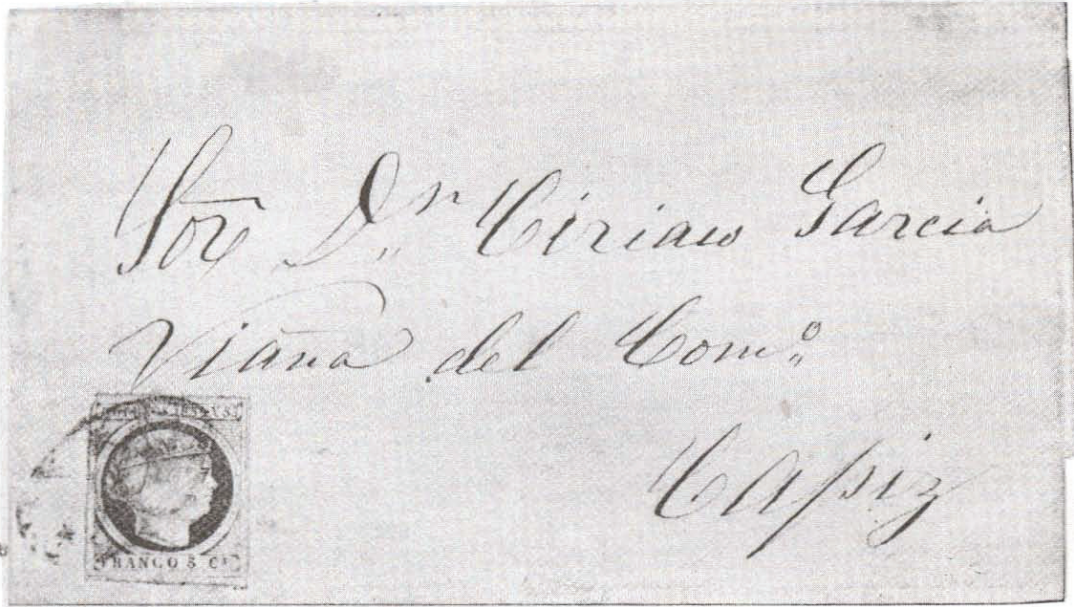 Sor Dn Ciriaco Garcia
Viana del Como
Capiz
FRANCO 5 Cs